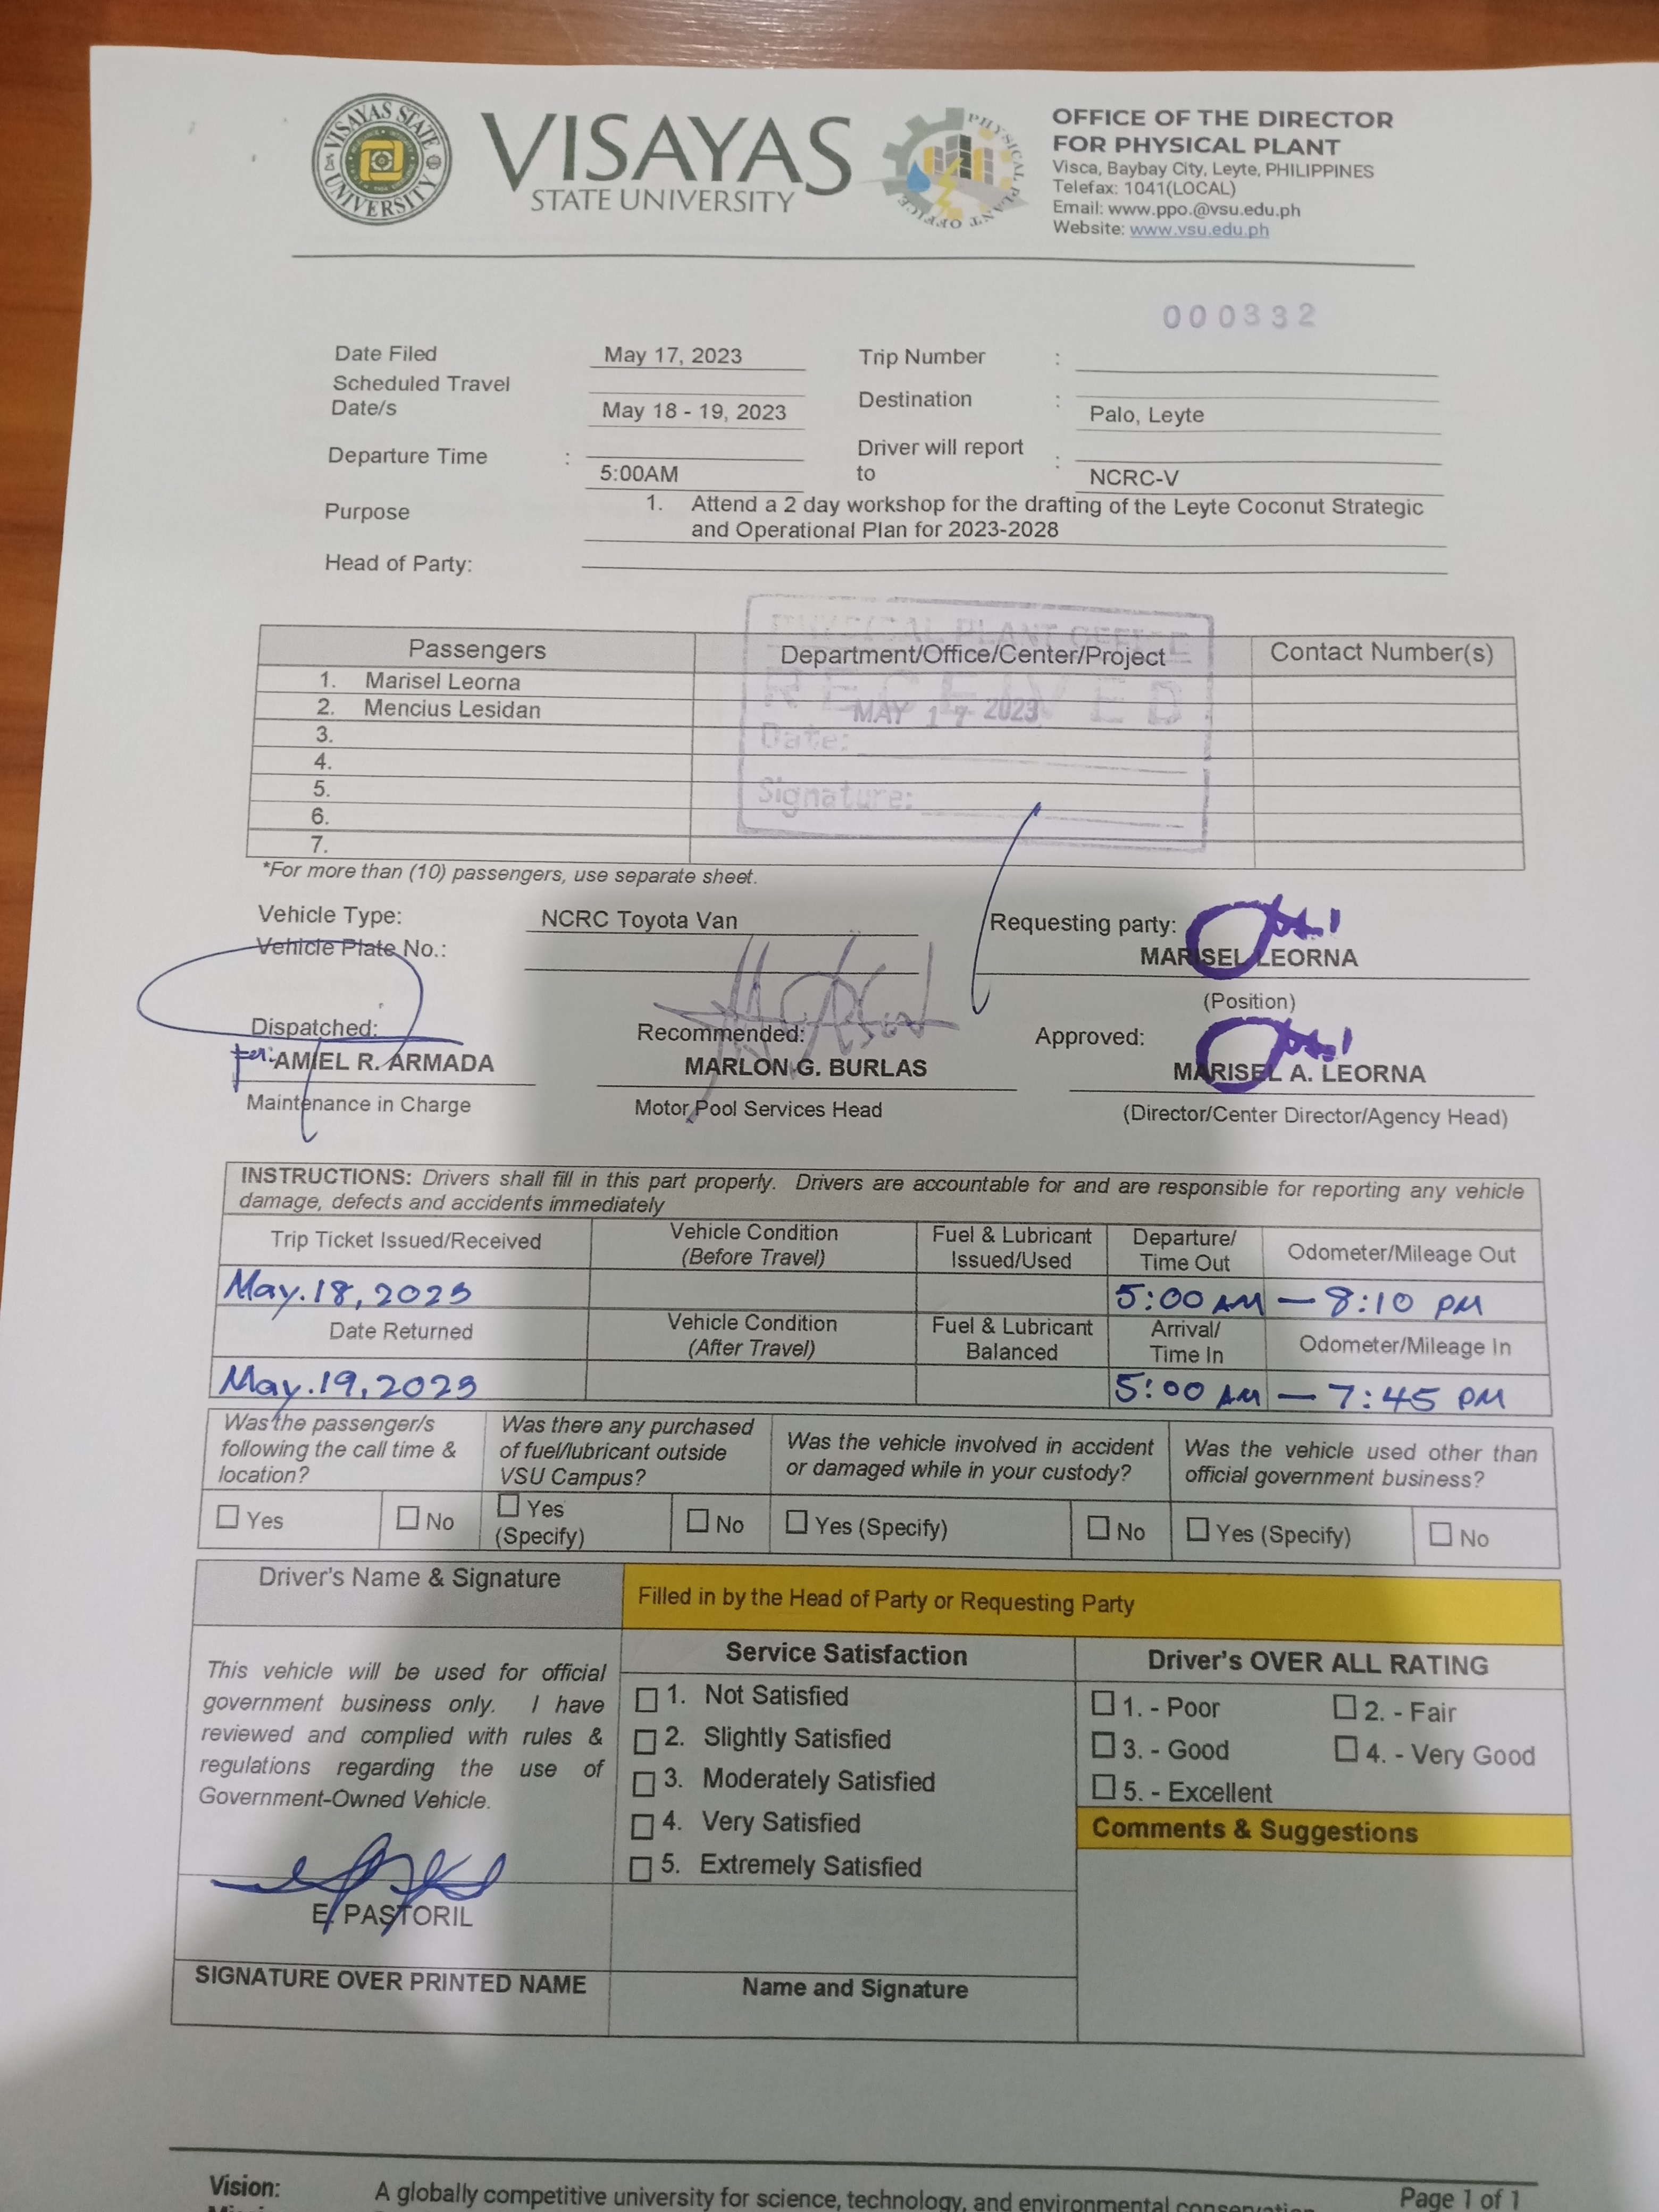 VISAYAS STATE UNIVERSITY
VISAYAS
STATE UNIVERSITY
PHYSICAL PLANT OFFICE
OFFICE OF THE DIRECTOR
FOR PHYSICAL PLANT
Visca, Baybay City, Leyte, PHILIPPINES
Telefax: 1041(LOCAL)
Email: www.ppo.@vsu.edu.ph
Website: www.vsu.edu.ph
000332
Date Filed May 17, 2023 Trip Number :
Scheduled Travel
Date/s May 18 - 19, 2023 Destination : Palo, Leyte
Departure Time : 5:00AM Driver will report
to : NCRC-V
Purpose 1. Attend a 2 day workshop for the drafting of the Leyte Coconut Strategic
and Operational Plan for 2023-2028
Head of Party:
PHYSICAL PLANT OFFICE
RECEIVED
MAY 17 2023
Date:
Signature:
Passengers Department/Office/Center/Project Contact Number(s)
1. Marisel Leorna
2. Mencius Lesidan
3.
4.
5.
6.
7.
*For more than (10) passengers, use separate sheet.
Vehicle Type: NCRC Toyota Van Requesting party:
Vehicle Plate No.: MARISEL LEORNA
(Position)
Dispatched: Recommended: Approved:
For: AMIEL R. ARMADA MARLON G. BURLAS MARISEL A. LEORNA
Maintenance in Charge Motor Pool Services Head (Director/Center Director/Agency Head)
INSTRUCTIONS: Drivers shall fill in this part properly. Drivers are accountable for and are responsible for reporting any vehicle
damage, defects and accidents immediately
Trip Ticket Issued/Received Vehicle Condition
(Before Travel) Fuel & Lubricant
Issued/Used Departure/
Time Out Odometer/Mileage Out
May.18, 2023 5:00 AM — 8:10 PM
Date Returned Vehicle Condition
(After Travel) Fuel & Lubricant
Balanced Arrival/
Time In Odometer/Mileage In
May.19, 2023 5:00 AM — 7:45 PM
Was the passenger/s
following the call time &
location?
Was there any purchased
of fuel/lubricant outside
VSU Campus?
Was the vehicle involved in accident
or damaged while in your custody?
Was the vehicle used other than
official government business?
☐ Yes ☐ No ☐ Yes
(Specify) ☐ No ☐ Yes (Specify) ☐ No ☐ Yes (Specify) ☐ No
Driver's Name & Signature Filled in by the Head of Party or Requesting Party
This vehicle will be used for official
government business only. I have
reviewed and complied with rules &
regulations regarding the use of
Government-Owned Vehicle.
E. PASTORIL
SIGNATURE OVER PRINTED NAME
Service Satisfaction
☐ 1. Not Satisfied
☐ 2. Slightly Satisfied
☐ 3. Moderately Satisfied
☐ 4. Very Satisfied
☐ 5. Extremely Satisfied
Name and Signature
Driver's OVER ALL RATING
☐ 1. - Poor ☐ 2. - Fair
☐ 3. - Good ☐ 4. - Very Good
☐ 5. - Excellent
Comments & Suggestions
Vision: A globally competitive university for science, technology, and environmental conservation
Page 1 of 1